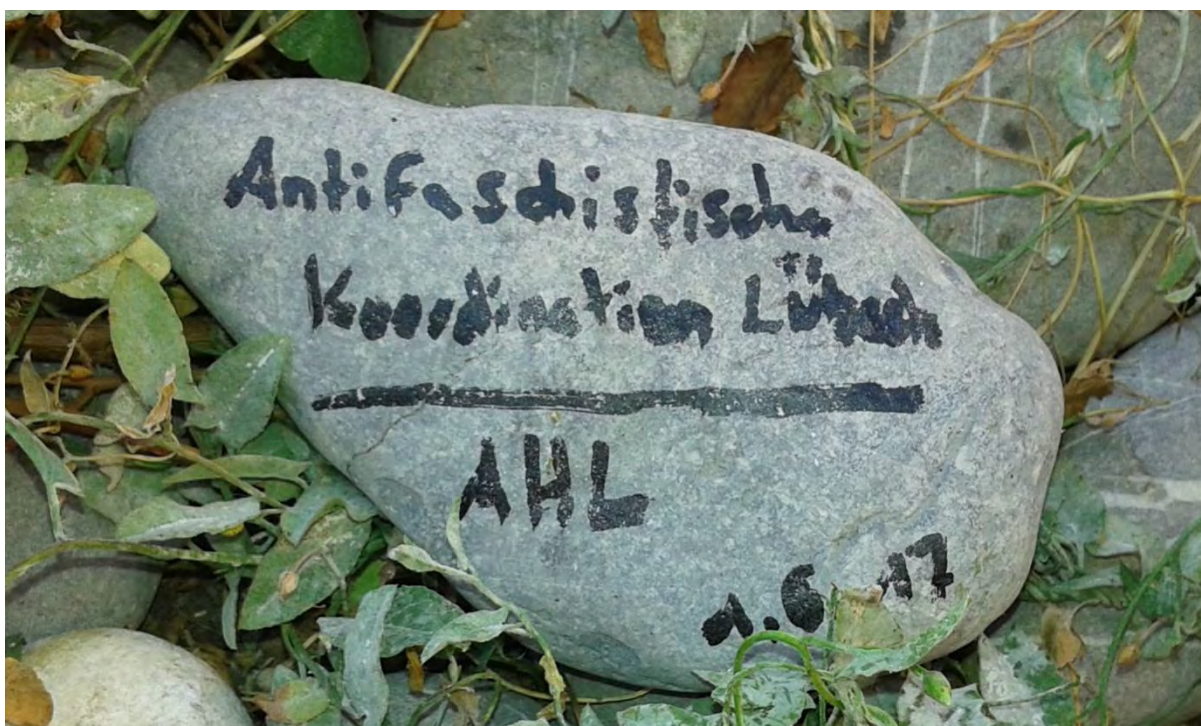 Antifaschistische
Koordination Lübeck
AHL
1.6.17